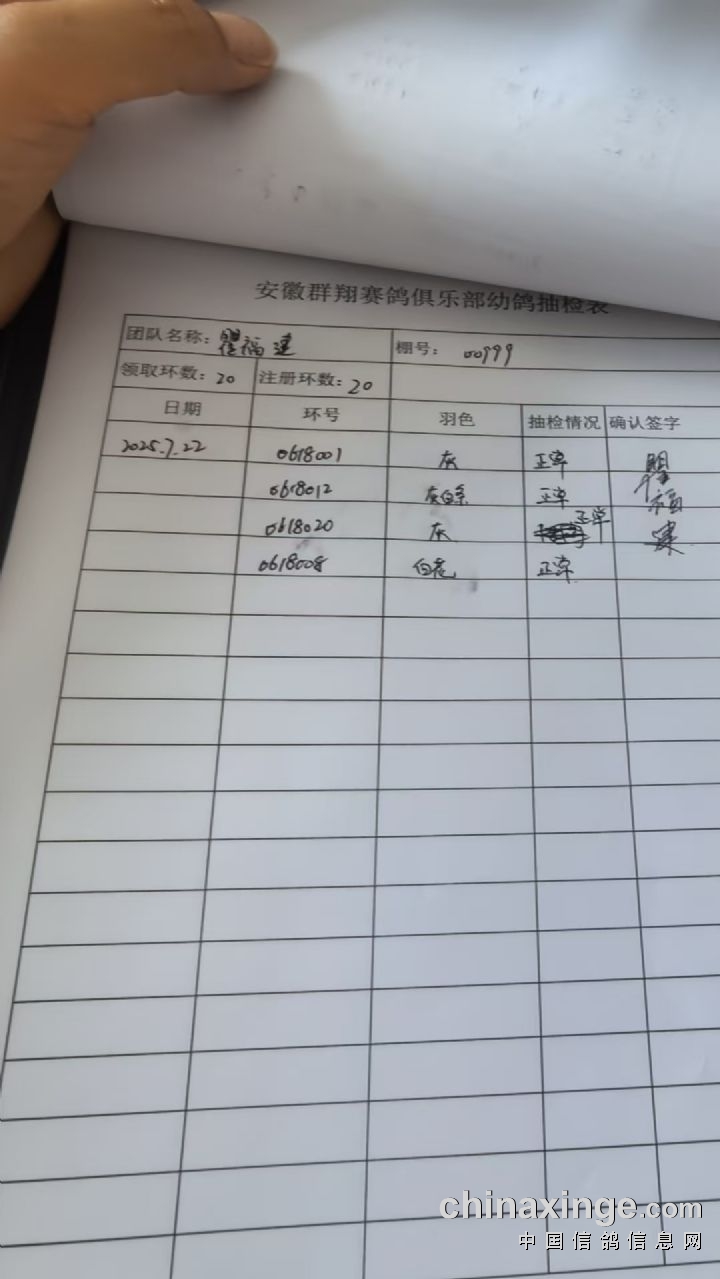 安徽群翔赛鸽俱乐部幼鸽抽检表
团队名称：瞿福建 棚号： 00999
领取环数：20 注册环数：20
日期 环号 羽色 抽检情况 确认签字
2025.7.22 0618001 灰 正常
0618012 灰白条 正常
0618020 灰 正常
0618008 白花 正常
瞿福建
chinaxinge.com
中国信鸽信息网